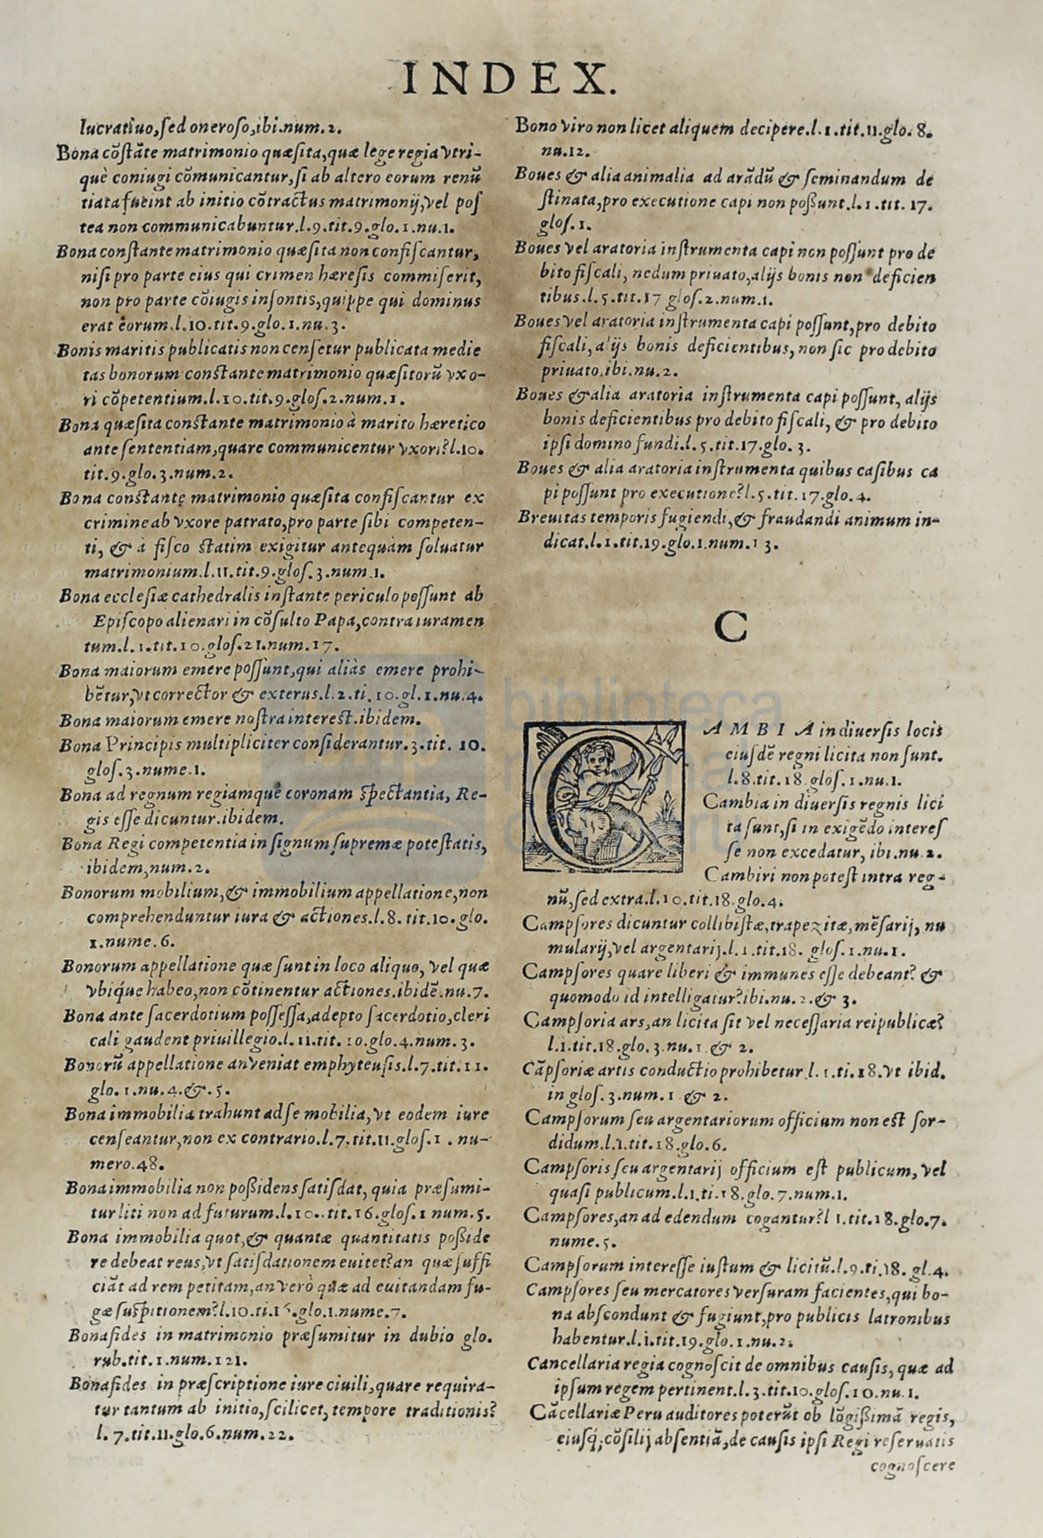 INDEX.
lucratiuo,sed oneroso,ibi.num.2.
Bona cõstãte matrimonio quæsita,quæ lege regia vtri-
què coniugi cõmunicantur,si ab altero eorum renũ
tiata fuerint ab initio cõtractus matrimonij,vel pos
tea non communicabuntur.l.9.tit.9.glo.1.nu.1.
Bona constante matrimonio quæsita non confiscantur,
nisi pro parte eius qui crimen hæresis commiserit,
non pro parte cõiugis insontis,quippe qui dominus
erat eorum.l.10.tit.9.glo.1.nu.3.
Bonis maritis publicatis non censetur publicata medie
tas bonorum constante matrimonio quæsitorũ vxo-
ri cõpetentium.l.10.tit.9.glos.2.num.1.
Bona quæsita constante matrimonio à marito hæretico
ante sententiam,quare communicentur vxori?l.10.
tit.9.glo.3.num.2.
Bona constante matrimonio quæsita confiscantur ex
crimine ab vxore patrato,pro parte sibi competen-
ti, & à fisco statim exigitur antequàm soluatur
matrimonium.l.11.tit.9.glos.3.num.1.
Bona ecclesiæ cathedralis instante periculo possunt ab
Episcopo alienari in cõsulto Papa,contra iuramen
tum.l.1.tit.10.glos.21.num.17.
Bona maiorum emere possunt,qui aliàs emere prohi-
bẽtur,vt corrector & exterus.l.2.ti.10.gl.1.nu.4.
Bona maiorum emere nostra interest.ibidem.
Bona Principis multipliciter considerantur.3.tit. 10.
glos.3.nume.1.
Bona ad regnum regiamquè coronam spectantia, Re-
gis esse dicuntur.ibidem.
Bona Regi competentia in signum supremæ potestatis,
ibidem,num.2.
Bonorum mobilium,& immobilium appellatione,non
comprehenduntur iura & actiones.l.8.tit.10.glo.
1.nume.6.
Bonorum appellatione quæ sunt in loco aliquo, vel quæ
vbique habeo,non cõtinentur actiones.ibidẽ.nu.7.
Bona ante sacerdotium possessa,adepto sacerdotio,cleri
cali gaudent priuillegio.l.11.tit.10.glo.4.num.3.
Bonorũ appellatione an veniat emphyteusis.l.7.tit.11.
glo.1.nu.4.&.5.
Bona immobilia trahunt ad se mobilia,vt eodem iure
censeantur,non ex contrario.l.7.tit.11.glos.1. nu-
mero.48.
Bona immobilia non poßidens satisdat, quia præsumi-
tur liti non ad futurum.l.10..tit.16.glos.1 num.5.
Bona immobilia quot,& quantæ quantitatis poßide
re debeat reus,vt satisdationem euitet?an quæ suffi
ciãt ad rem petitam,an verò quæ ad euitandam fu-
gæ suspitionem?l.10.ti.16.glo.1.nume.7.
Bonafides in matrimonio præsumitur in dubio glo.
rub.tit.1.num.121.
Bonafides in præscriptione iure ciuili,quare requira-
tur tantum ab initio,scilicet,tempore traditionis?
l.7.tit.11.glo.6.num.22.
Bono viro non licet aliquem decipere.l.1.tit.11.glo.8.
nu.12.
Boues & alia animalia ad arãdũ & seminandum de
stinata,pro executione capi non poßunt.l.1.tit. 17.
glos.1.
Boues vel aratoria instrumenta capi non possunt pro de
bito fiscali, nedum priuato,alijs bonis non deficien
tibus.l.5.tit.17 glos.2.num.1.
Boues vel aratoria instrumenta capi possunt,pro debito
fiscali,alijs bonis deficientibus,non sic pro debito
priuato.ibi.nu.2.
Boues & alia aratoria instrumenta capi possunt, alijs
bonis deficientibus pro debito fiscali, & pro debito
ipsi domino fundi.l.5.tit.17.glo.3.
Boues & alia aratoria instrumenta quibus casibus ca
pi possunt pro executione?l.5.tit.17.glo.4.
Breuitas temporis fugiendi,& fraudandi animum in-
dicat.l.1.tit.19.glo.1.num.13.
C
CAMBIA in diuersis locis
eiusdẽ regni licita non sunt.
l.8.tit.18.glos.1.nu.1.
Cambia in diuersis regnis lici
ta sunt,si in exigẽdo interes
se non excedatur, ibi.nu.2.
Cambiri non potest intra reg-
nũ,sed extra.l.10.tit.18.glo.4.
Campsores dicuntur collibistæ,trapezitæ,mẽsarij, nu
mularij,vel argentarij.l.1.tit.18.glos.1.nu.1.
Campsores quare liberi & immunes esse debeant? &
quomodo id intelligatur?ibi.nu.2.& 3.
Campsoria ars,an licita sit vel necessaria reipublicæ?
l.1.tit.18.glo.3.nu.1.& 2.
Cãpsoriæ artis conductio prohibetur.l.1.ti.18.vt ibid.
in glos.3.num.1 & 2.
Campsorum seu argentariorum officium non est sor-
didum.l.1.tit.18.glo.6.
Campsoris seu argentarij officium est publicum, vel
quasi publicum.l.1.ti.18.glo.7.num.1.
Campsores,an ad edendum cogantur?l 1.tit.18.glo.7.
nume.5.
Campsorum interesse iustum & licitũ.l.9.ti.18.gl.4.
Campsores seu mercatores versuram facientes,qui bo-
na abscondunt & fugiunt,pro publicis latronibus
habentur.l.1.tit.19.glo.1.nu.2.
Cancellaria regia cognoscit de omnibus causis, quæ ad
ipsum regem pertinent.l.3.tit.10.glos.10.nu.1.
Cãcellariæ Peru auditores poterũt ob lõgißimã regis,
eiusq;cõsilij absentiã,de causis ipsi Regi reseruatis
cognoscere
biblioteca